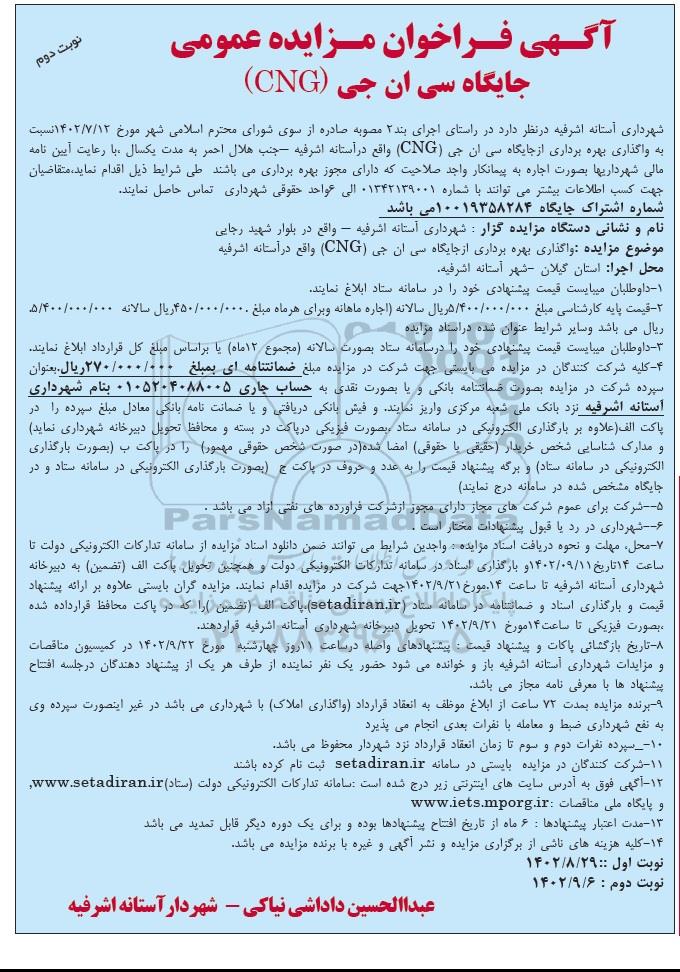 آگهی فراخوان مزایده عمومی
نوبت دوم
جایگاه سی ان جی (CNG)
شهرداری آستانه اشرفیه درنظر دارد در راستای اجرای بند۲ مصوبه صادره از سوی شورای محترم اسلامی شهر مورخ ۱۴۰۲/۷/۱۲نسبت
به واگذاری بهره برداری ازجایگاه سی ان جی (CNG) واقع درآستانه اشرفیه –جنب هلال احمر به مدت یکسال ،با رعایت آیین نامه
مالی شهرداریها بصورت اجاره به پیمانکار واجد صلاحیت که دارای مجوز بهره برداری می باشند طی شرایط ذیل اقدام نماید،متقاضیان
جهت کسب اطلاعات بیشتر می توانند با شماره ۰۱۳۴۲۱۳۹۰۰۱ الی ۶واحد حقوقی شهرداری تماس حاصل نمایند.
شماره اشتراک جایگاه ۱۰۰۱۹۳۵۸۲۸۴می باشد
نام و نشانی دستگاه مزایده گزار : شهرداری آستانه اشرفیه – واقع در بلوار شهید رجایی
موضوع مزایده :واگذاری بهره برداری ازجایگاه سی ان جی (CNG) واقع درآستانه اشرفیه
محل اجرا: استان گیلان –شهر آستانه اشرفیه.
۱-داوطلبان میبایست قیمت پیشنهادی خود را در سامانه ستاد ابلاغ نمایند.
۲-قیمت پایه کارشناسی مبلغ ۵/۴۰۰/۰۰۰/۰۰۰ریال سالانه (اجاره ماهانه وبرای هرماه مبلغ ۴۵۰/۰۰۰/۰۰۰.ریال سالانه ۵/۴۰۰/۰۰۰/۰۰۰.
ریال می باشد وسایر شرایط عنوان شده دراسناد مزایده
۳-داوطلبان میبایست قیمت پیشنهادی خود را درسامانه ستاد بصورت سالانه (مجموع ۱۲ماه) یا براساس مبلغ کل قرارداد ابلاغ نمایند.
۴-کلیه شرکت کنندگان در مزایده می بایستی جهت شرکت در مزایده مبلغ ضمانتنامه ای بمبلغ ۲۷۰/۰۰۰/۰۰۰ریال.بعنوان
سپرده شرکت در مزایده بصورت ضمانتنامه بانکی و یا بصورت نقدی به حساب جاری ۰۱۰۵۲۰۴۰۸۸۰۰۵ بنام شهرداری
آستانه اشرفیه نزد بانک ملی شعبه مرکزی واریز نمایند. و فیش بانکی دریافتی و یا ضمانت نامه بانکی معادل مبلغ سپرده را در
پاکت الف(علاوه بر بارگذاری الکترونیکی در سامانه ستاد ،بصورت فیزیکی درپاکت در بسته و محافظ تحویل دبیرخانه شهرداری نماید)
و مدارک شناسایی شخص خریدار (حقیقی یا حقوقی) امضا شده(در صورت شخص حقوقی مهمور) را در پاکت ب (بصورت بارگذاری
الکترونیکی در سامانه ستاد) و برگه پیشنهاد قیمت را به عدد و حروف در پاکت ج (بصورت بارگذاری الکترونیکی در سامانه ستاد و در
جایگاه مشخص شده در سامانه درج نمایند)
۵--شرکت برای عموم شرکت های مجاز دارای مجوز ازشرکت فراورده های نفتی آزاد می باشد .
۶--شهرداری در رد یا قبول پیشنهادات مختار است .
۷-محل، مهلت و نحوه دریافت اسناد مزایده : واجدین شرایط می توانند ضمن دانلود اسناد مزایده از سامانه تدارکات الکترونیکی دولت تا
ساعت ۱۴تاریخ۱۴۰۲/۰۹/۱۱و بارگذاری اسناد در سامانه تدارکات الکترونیکی دولت و همچنین تحویل پاکت الف (تضمین) به دبیرخانه
شهرداری آستانه اشرفیه تا ساعت ۱۴،مورخ۱۴۰۲/۹/۲۱جهت شرکت در مزایده اقدام نمایند. مزایده گران بایستی علاوه بر ارائه پیشنهاد
قیمت و بارگذاری اسناد و ضمانتنامه در سامانه ستاد (setadiran.ir)،پاکت الف (تضمین )را،که در پاکت محافظ قرارداده شده
،بصورت فیزیکی تا ساعت۱۴مورخ ۱۴۰۲/۹/۲۱ تحویل دبیرخانه شهرداری آستانه اشرفیه قراردهند.
۸-تاریخ بازگشائی پاکات و پیشنهاد قیمت : پیشنهادهای واصله درساعت ۱۱روز چهارشنبه مورخ ۱۴۰۲/۹/۲۲ در کمیسیون مناقصات
و مزایدات شهرداری آستانه اشرفیه باز و خوانده می شود حضور یک نفر نماینده از طرف هر یک از پیشنهاد دهندگان درجلسه افتتاح
پیشنهاد ها با معرفی نامه مجاز می باشد.
۹-برنده مزایده بمدت ۷۲ ساعت از ابلاغ موظف به انعقاد قرارداد (واگذاری املاک) با شهرداری می باشد در غیر اینصورت سپرده وی
به نفع شهرداری ضبط و معامله با نفرات بعدی انجام می پذیرد
۱۰-_سپرده نفرات دوم و سوم تا زمان انعقاد قرارداد نزد شهردار محفوظ می باشد.
۱۱-شرکت کنندگان در مزایده بایستی در سامانه setadiran.ir ثبت نام کرده باشند
۱۲-آگهی فوق به آدرس سایت های اینترنتی زیر درج شده است :سامانه تدارکات الکترونیکی دولت (ستاد)www.setadiran.ir,
و پایگاه ملی مناقصات :www.iets.mporg.ir
۱۳-مدت اعتبار پیشنهادها : ۶ ماه از تاریخ افتتاح پیشنهادها بوده و برای یک دوره دیگر قابل تمدید می باشد
۱۴-کلیه هزینه های ناشی از برگزاری مزایده و نشر آگهی و غیره با برنده مزایده می باشد.
نوبت اول ::۱۴۰۲/۸/۲۹
نوبت دوم : ۱۴۰۲/۹/۶
عبداالحسین داداشی نیاکی – شهردار آستانه اشرفیه
ParsNamadData
۰۲۱-۸۸۳۴۹۶۷۰-۵